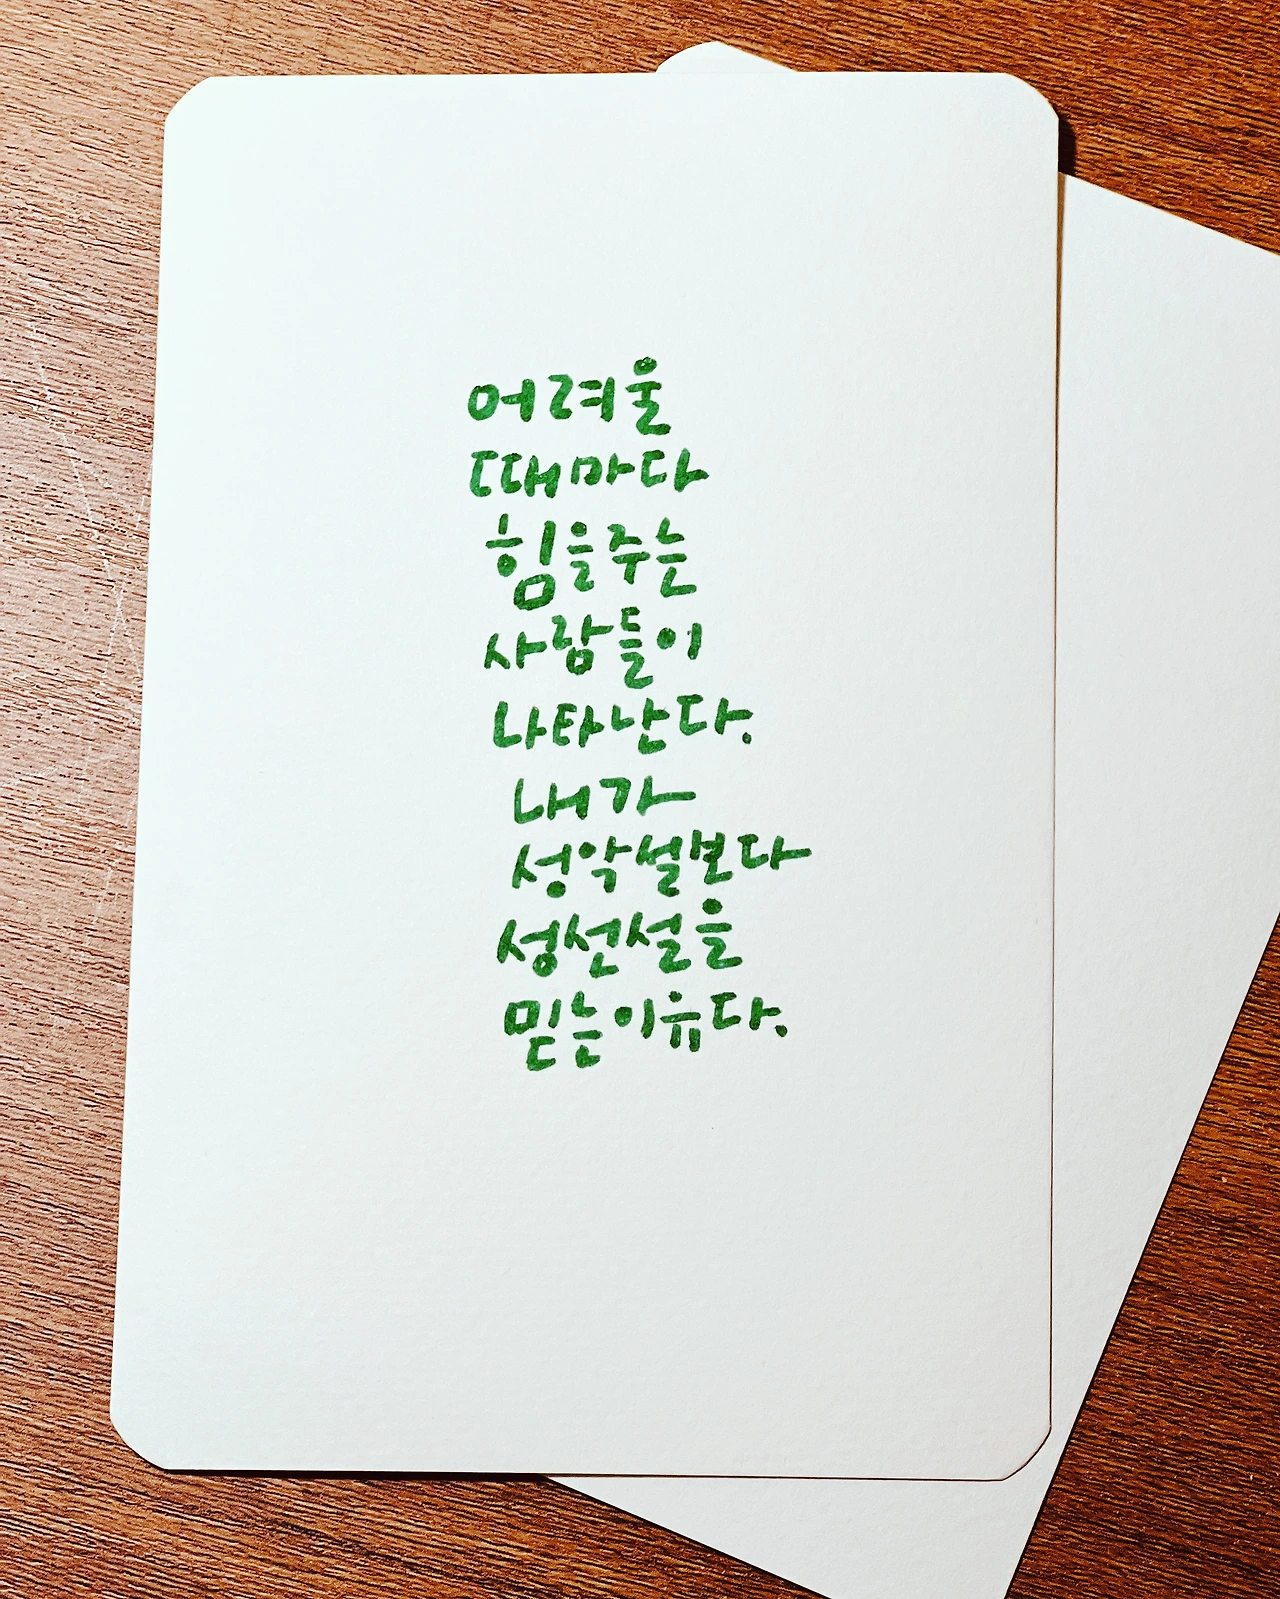 어려울
때마다
힘을주는
사람들이
나타난다.
내가
성악설보다
성선설을
믿는이유다.